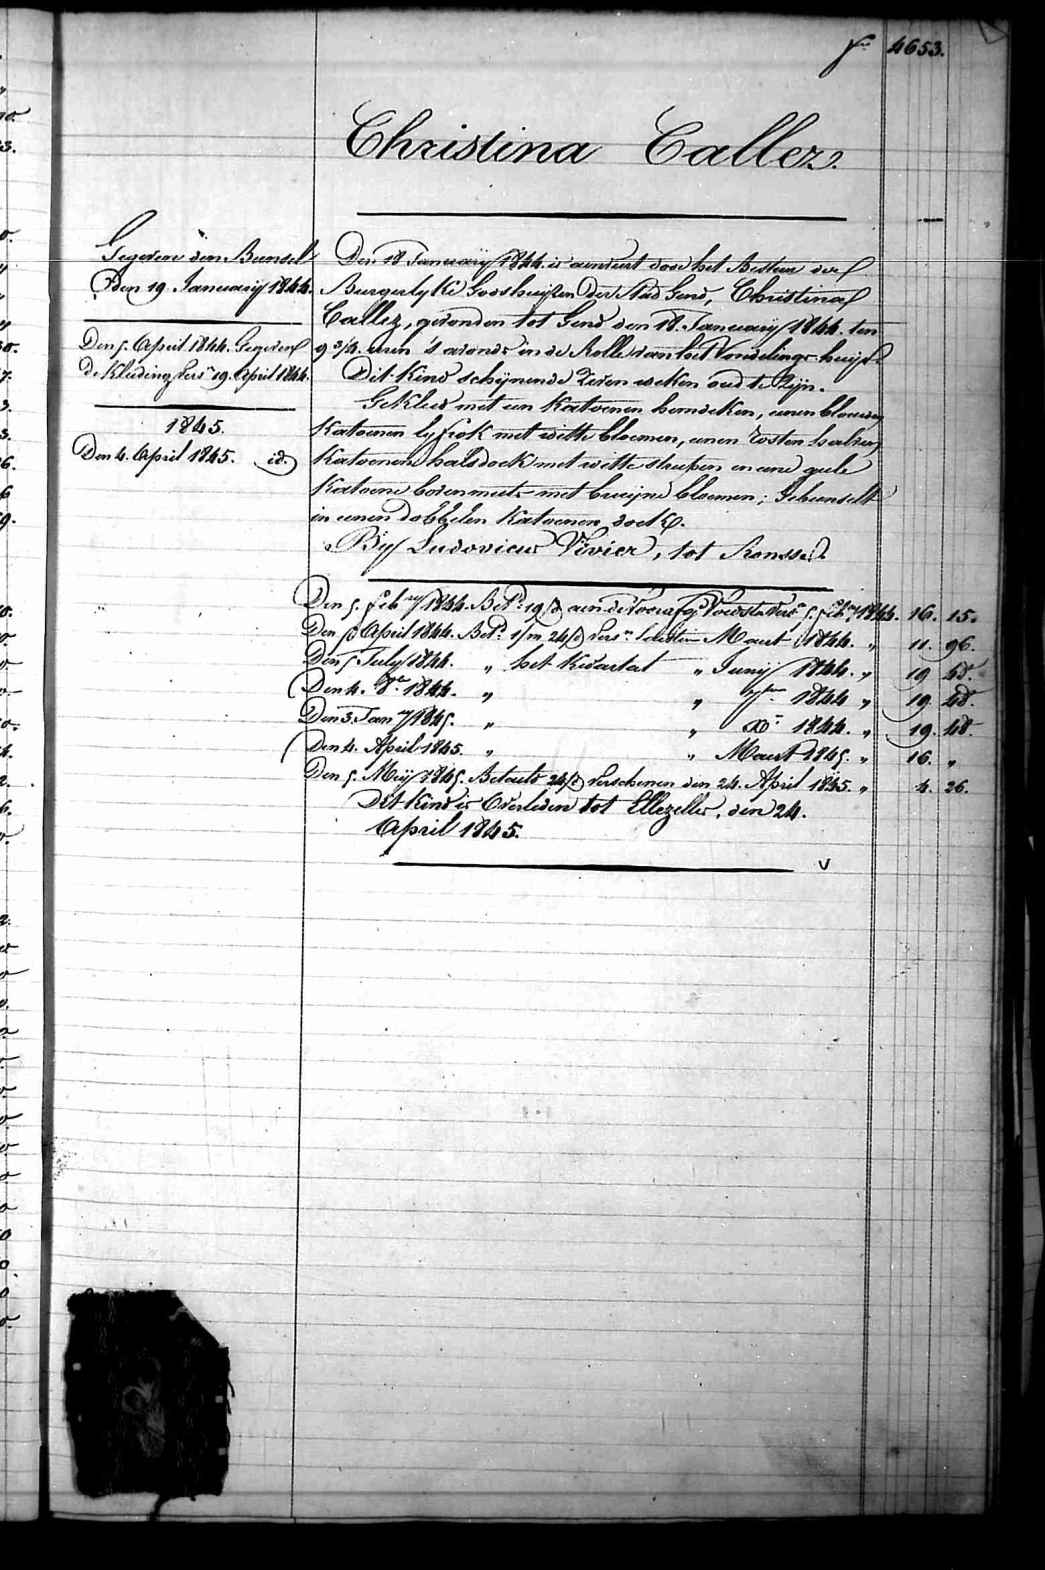 fo 4653.
Christina Callez.
Gegeven den Bunsel
Den 19 January 1844.
Den 5. April 1844. Gegeven
de Kleding vers. 19. April 1844.
1845.
Den 4. April 1845. id.
Den 18 January 1844. is aenveirt door het Bestier der
Burgerlyke Godshuijzen der Stad Gend, Christina
Callez, gevonden tot Gend den 18. January 1844. ten
9 3/4. uren 's avonds in de Rolle van het Vondelings-huijs.
Dit Kind schijnende zeven weken oud te Zijn.
Gekleed met een Katoenen hemdeken, eenen blauwen
Katoenen lyfrok met witte bloemen, eenen rosten halven
Katoenen halsdoek met witte streepen en eene geele
Katoene bovenmuts met bruijne bloemen; Gebunselt
in eenen dobbelen Katoenen doek.
By Ludovicus Vivier, tot Ronsse.
Den 5. feb.ry 1844. Bet.d 19/d aen de Voorafg. Voedster vers. 5. feb.ry 1844. 16. 15.
Den 5 April 1844. Bet.d 1/m 24/d vers.n Maert 1844. " 11. 96.
Den 5 July 1844. " het Kwartael " Juny 1844. " 19. 48.
Den 4. 8.e 1844. " " 7ber 1844 " 19. 48.
Den 3. Jan.y 1845. " " X.r 1844. " 19. 48.
Den 4. April 1845. " " Maert 1845. " 16. "
Den 5. Meij 1845. Betaeld 24/d Verschenen den 24. April 1845. " 4. 26.
Dit Kind is Overleden tot Ellezelles, den 24.
April 1845.